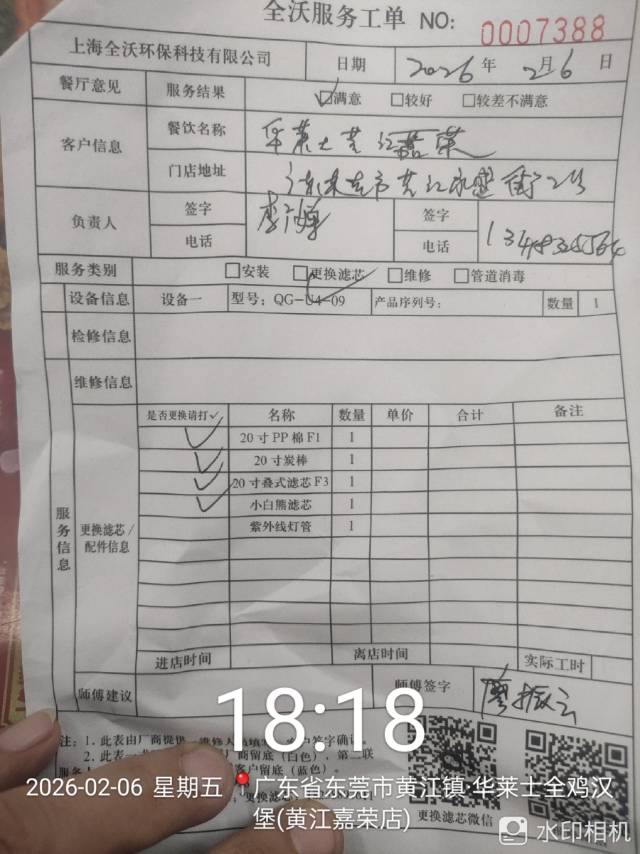 全沃服务工单 NO: 0007388
上海全沃环保科技有限公司 日期 2026 年 2月6 日
餐厅意见 服务结果 ☑满意 □较好 □较差不满意
客户信息 餐饮名称 华莱士黄江嘉荣
门店地址 广东东莞市黄江
负责人 签字 签字
电话 电话
服务类别 □安装 ☑更换滤芯 □维修 □管道消毒
设备信息 设备一 型号: QG-U4-09 产品序列号: 数量 1
检修信息
维修信息
是否更换请打✓ 名称 数量 单价 合计 备注
✓ 20寸PP棉F1 1
✓ 20寸炭棒 1
✓ 20寸叠式滤芯F3 1
✓ 小白熊滤芯 1
紫外线灯管 1
服务信息
更换滤芯/配件信息
进店时间 离店时间 实际工时
师傅建议 师傅签字 廖振云
注: 1. 此表由厂商提供
2. 此表一
商留底(白色), 第二联
客户留底(蓝色).
更换滤芯微信
18:18
2026-02-06 星期五 广东省东莞市黄江镇·华莱士全鸡汉
堡(黄江嘉荣店)
水印相机